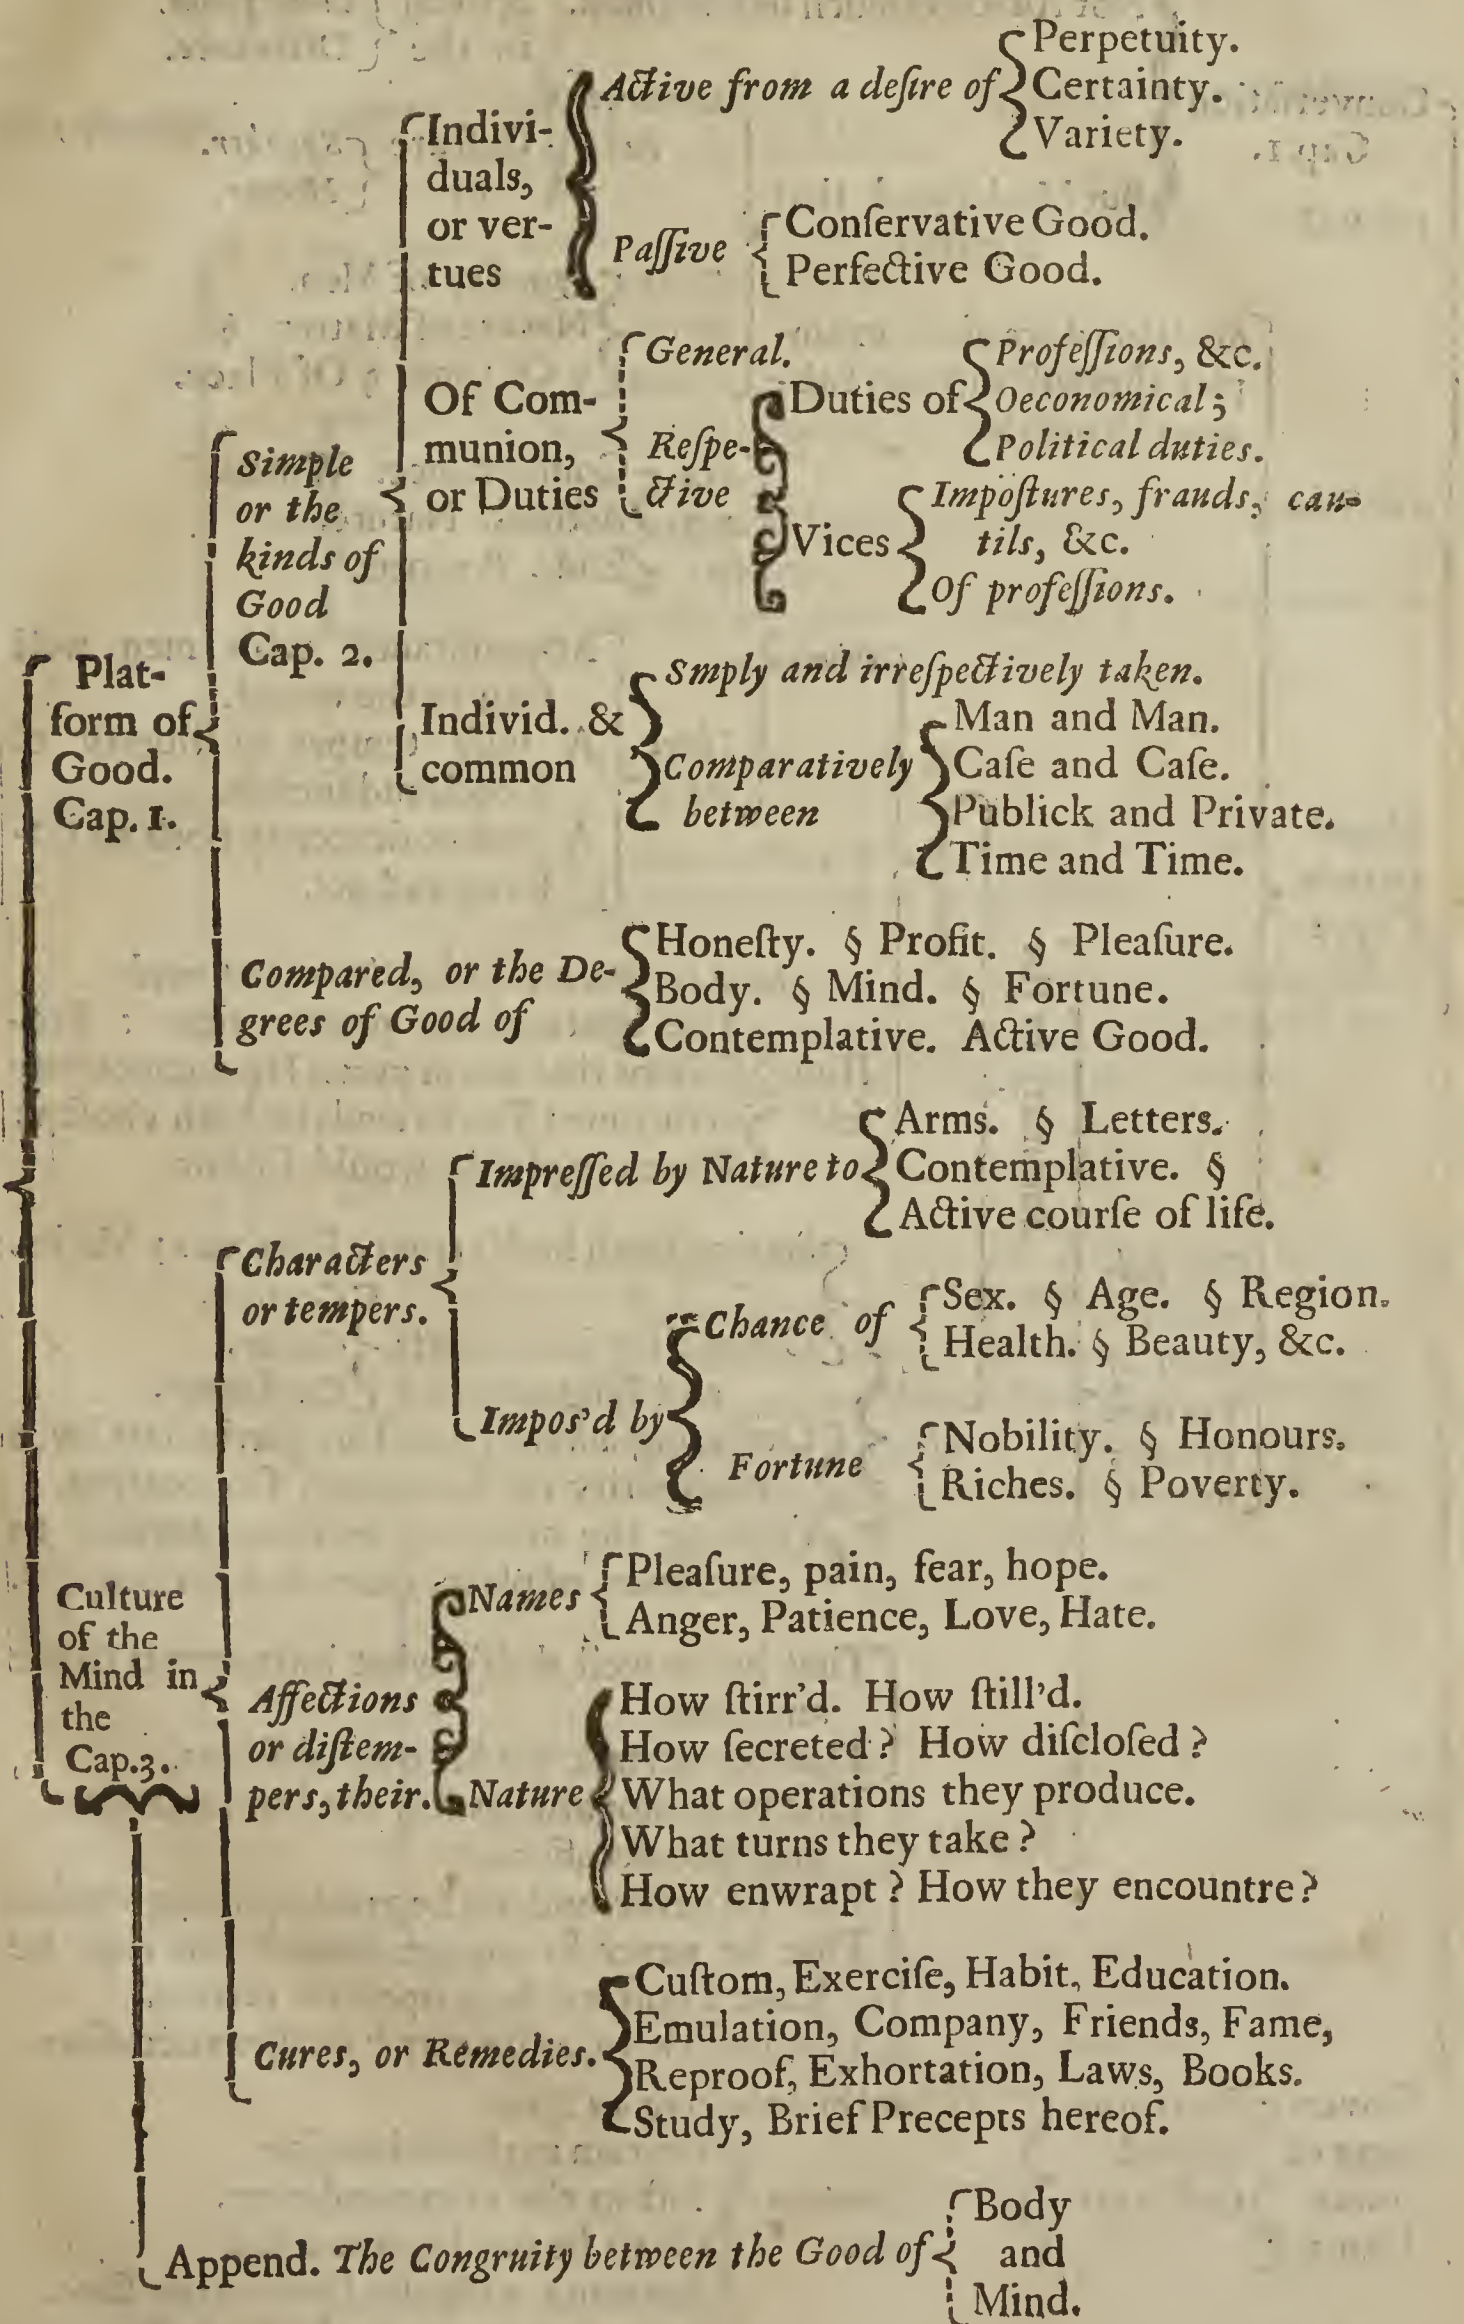 Perpetuity.
Active from a deſire of
Certainty.
Variety.
Indivi-
duals,
or ver-
tues
Paſſive
Conſervative Good.
Perfective Good.
General.
Of Com-
munion,
or Duties
Reſpe-
ctive
Duties of
Profeſſions, &c.
Oeconomical;
Political duties.
Vices
Impoſtures, frauds, cau-
tils, &c.
Of profeſſions.
Simple
or the
kinds of
Good
Cap. 2.
Plat-
form of
Good.
Cap. 1.
Individ. &
common
Smply and irreſpectively taken.
Comparatively
between
Man and Man.
Caſe and Caſe.
Publick and Private.
Time and Time.
Compared, or the De-
grees of Good of
Honeſty. § Profit. § Pleaſure.
Body. § Mind. § Fortune.
Contemplative. Active Good.
Characters
or tempers.
Impreſſed by Nature to
Arms. § Letters.
Contemplative. §
Active courſe of life.
Impos'd by
Chance of
Sex. § Age. § Region.
Health. § Beauty, &c.
Fortune
Nobility. § Honours.
Riches. § Poverty.
Culture
of the
Mind in
the
Cap.3.
Affections
or diſtem-
pers, their.
Names
Pleaſure, pain, fear, hope.
Anger, Patience, Love, Hate.
Nature
How ſtirr'd. How ſtill'd.
How ſecreted? How diſcloſed?
What operations they produce.
What turns they take?
How enwrapt? How they encountre?
Cures, or Remedies.
Cuſtom, Exerciſe, Habit, Education.
Emulation, Company, Friends, Fame,
Reproof, Exhortation, Laws, Books.
Study, Brief Precepts hereof.
Append. The Congruity between the Good of
Body
and
Mind.